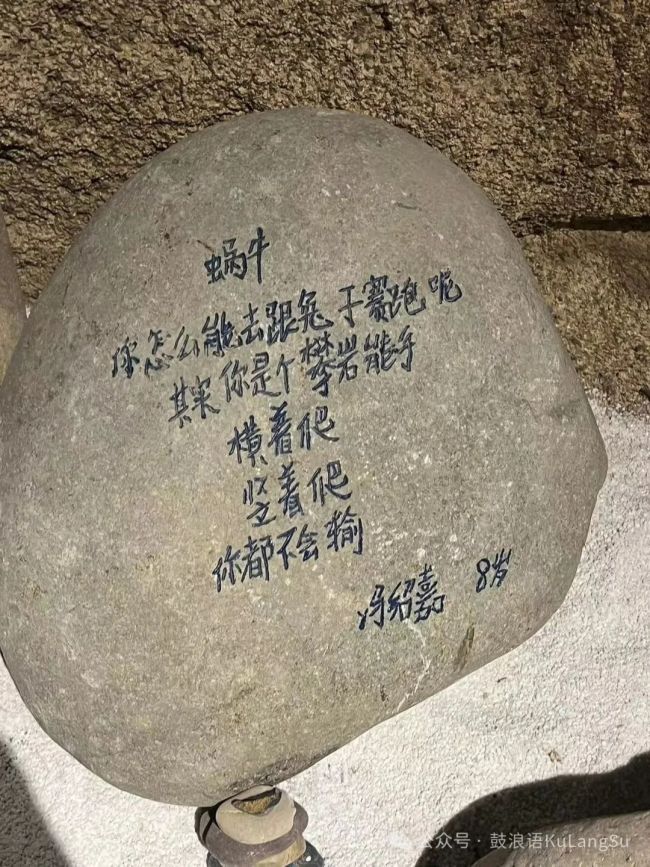 蜗牛
你怎么能去跟兔子赛跑呢
其实你是个攀岩能手
横着爬
竖着爬
你都不会输
冯绍嘉 8岁
公众号·鼓浪语KuLangSu